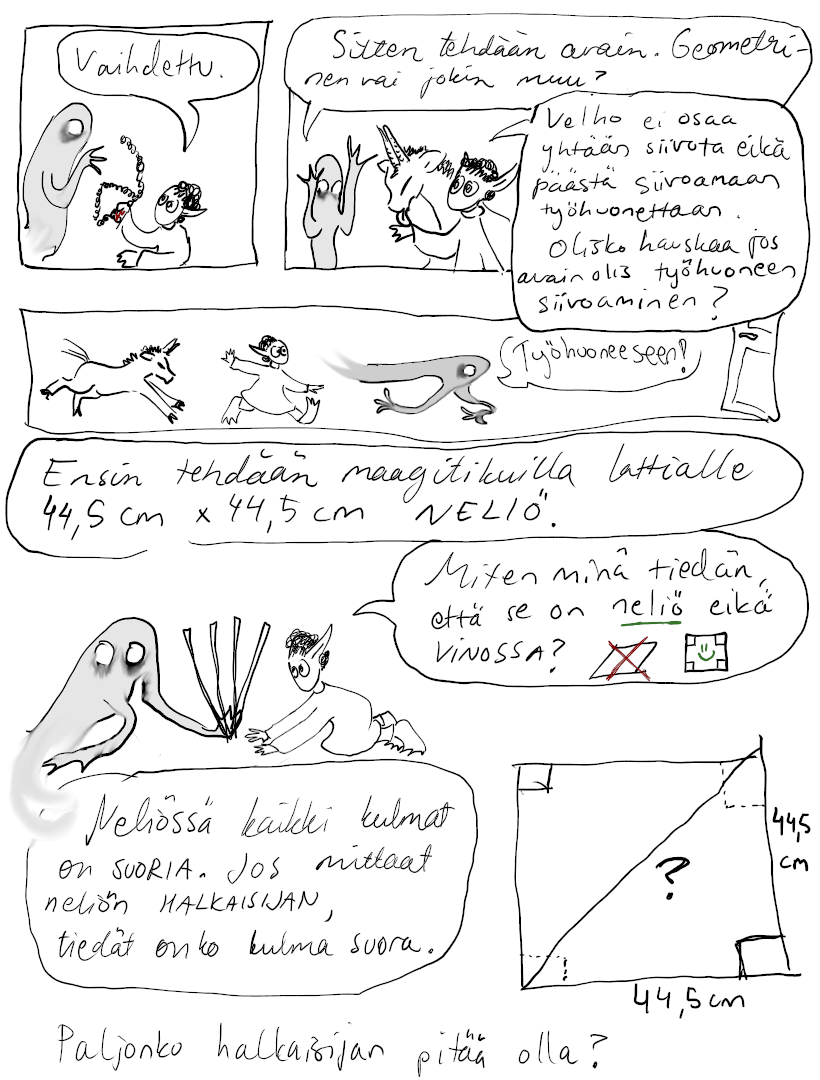 Vaihdettu.
Sitten tehdään avain. Geometri-
nen vai jokin muu?
Velho ei osaa
yhtään siivota eikä
päästä siivoamaan
työhuonettaan.
Olisko hauskaa jos
avain olis työhuoneen
siivoaminen?
Työhuoneeseen!
Ensin tehdään maagitikuilla lattialle
44,5 cm x 44,5 cm NELIÖ.
Miten minä tiedän,
että se on neliö eikä
VINOSSA?
Neliössä kaikki kulmat
on SUORIA. JOS mittaat
neliön HALKAISIJAN,
tiedät onko kulma suora.
44,5
cm
?
44,5cm
Paljonko halkaisijan pitää olla?